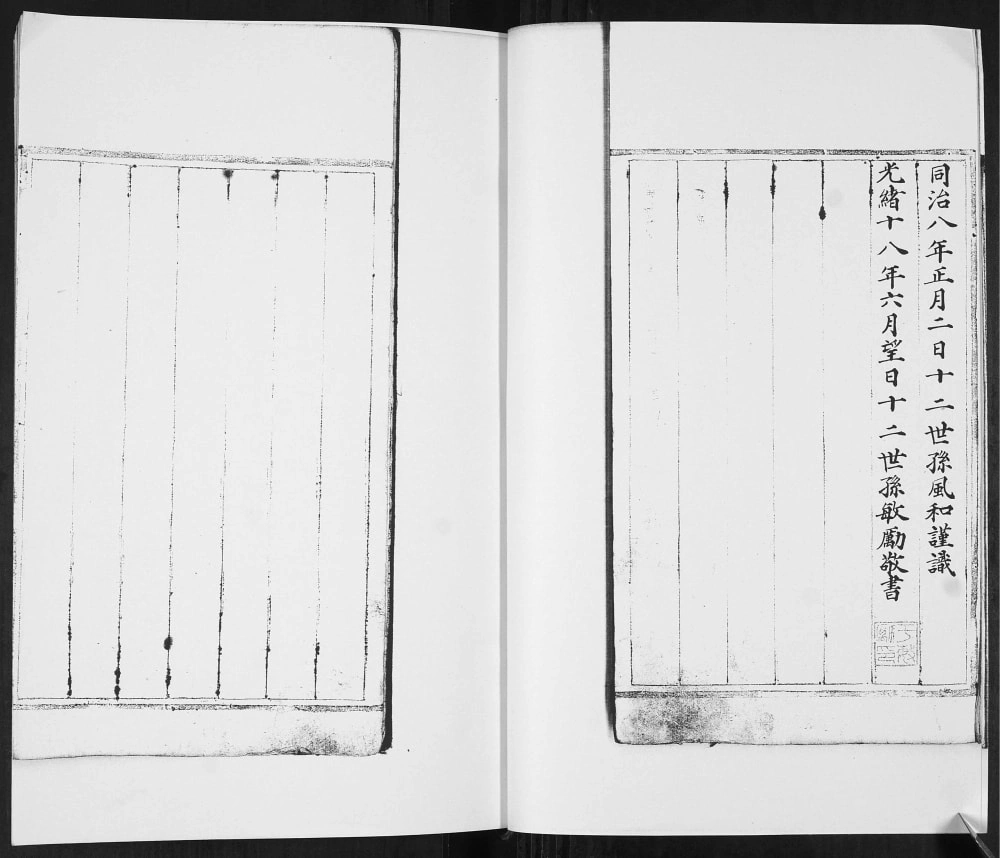 同治八年正月二日十二世孫風和謹識
光緒十八年六月望日十二世孫敏勵敬書